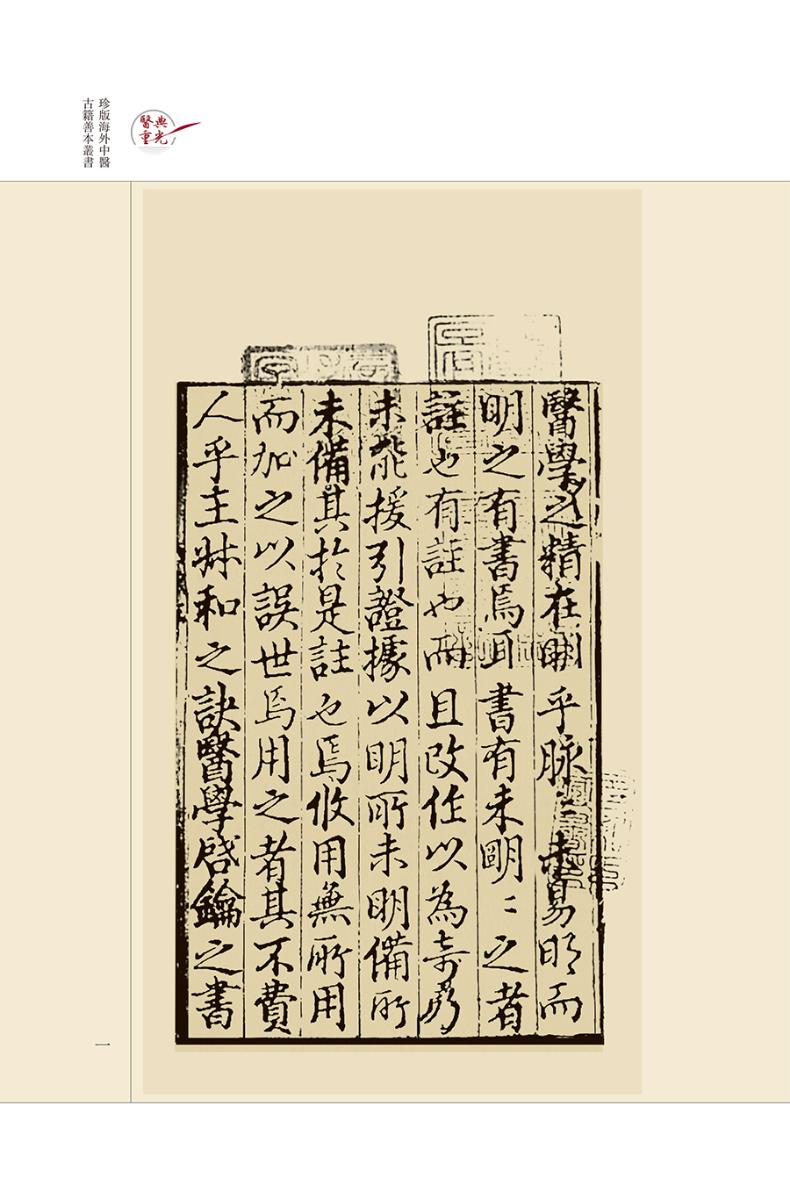 珍版海外中醫
古籍善本叢書
醫典
重光
醫學之精在明乎脉〻未易明而
明之有書焉耳書有未明〻之者
註也有註也而且改作以為奇乃
未能援引證據以明所未明備所
未備其於是註也焉攸用無所用
而加之以誤世焉用之者其不費
人乎王叔和之訣醫學啓鑰之書
一